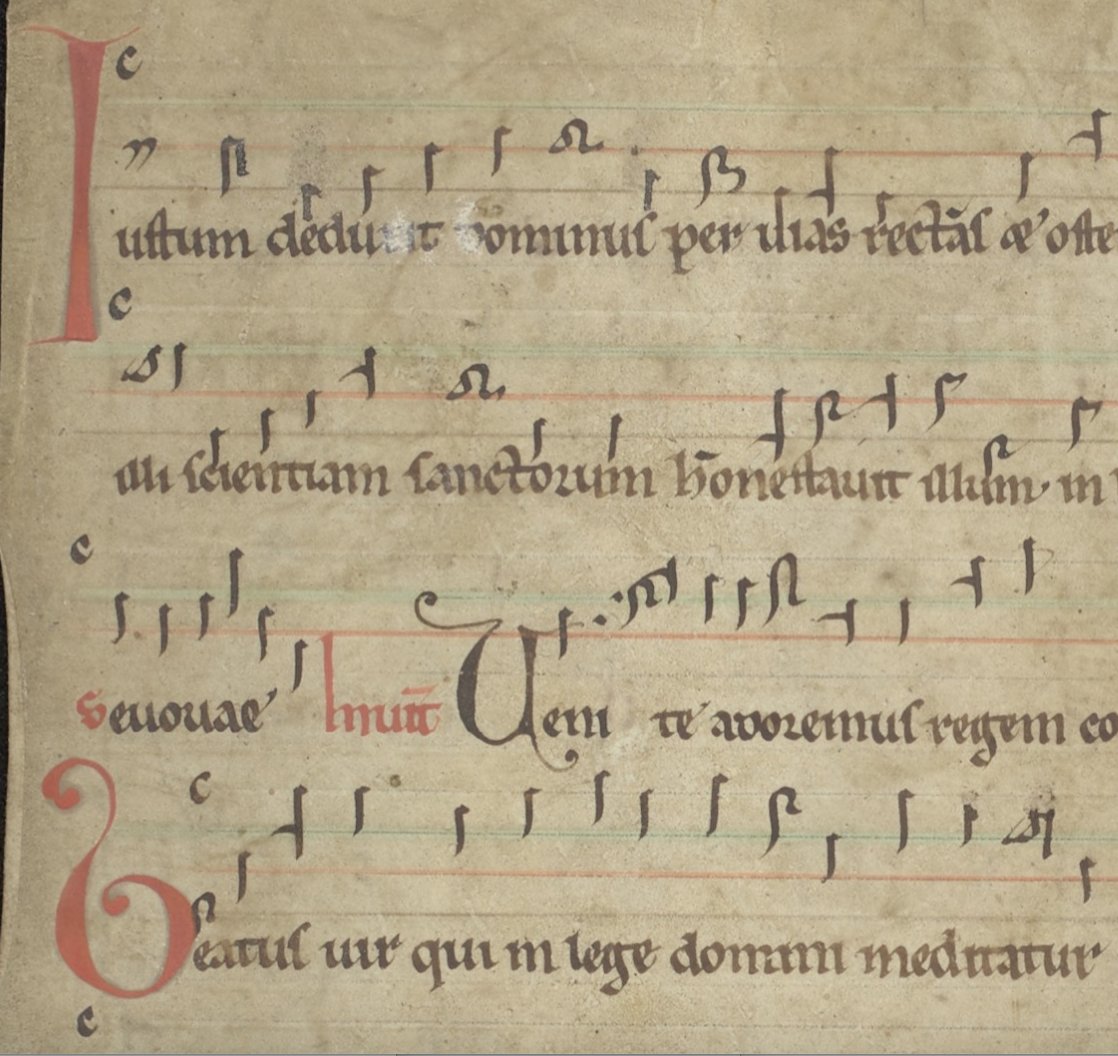 Iustum deduxit dominus per uias rectas & oste
illi scientiam sanctorum honestauit illum in
Seuouae Inuit Ueni te adoremus regem co
Beatus uir qui in lege domini meditatur